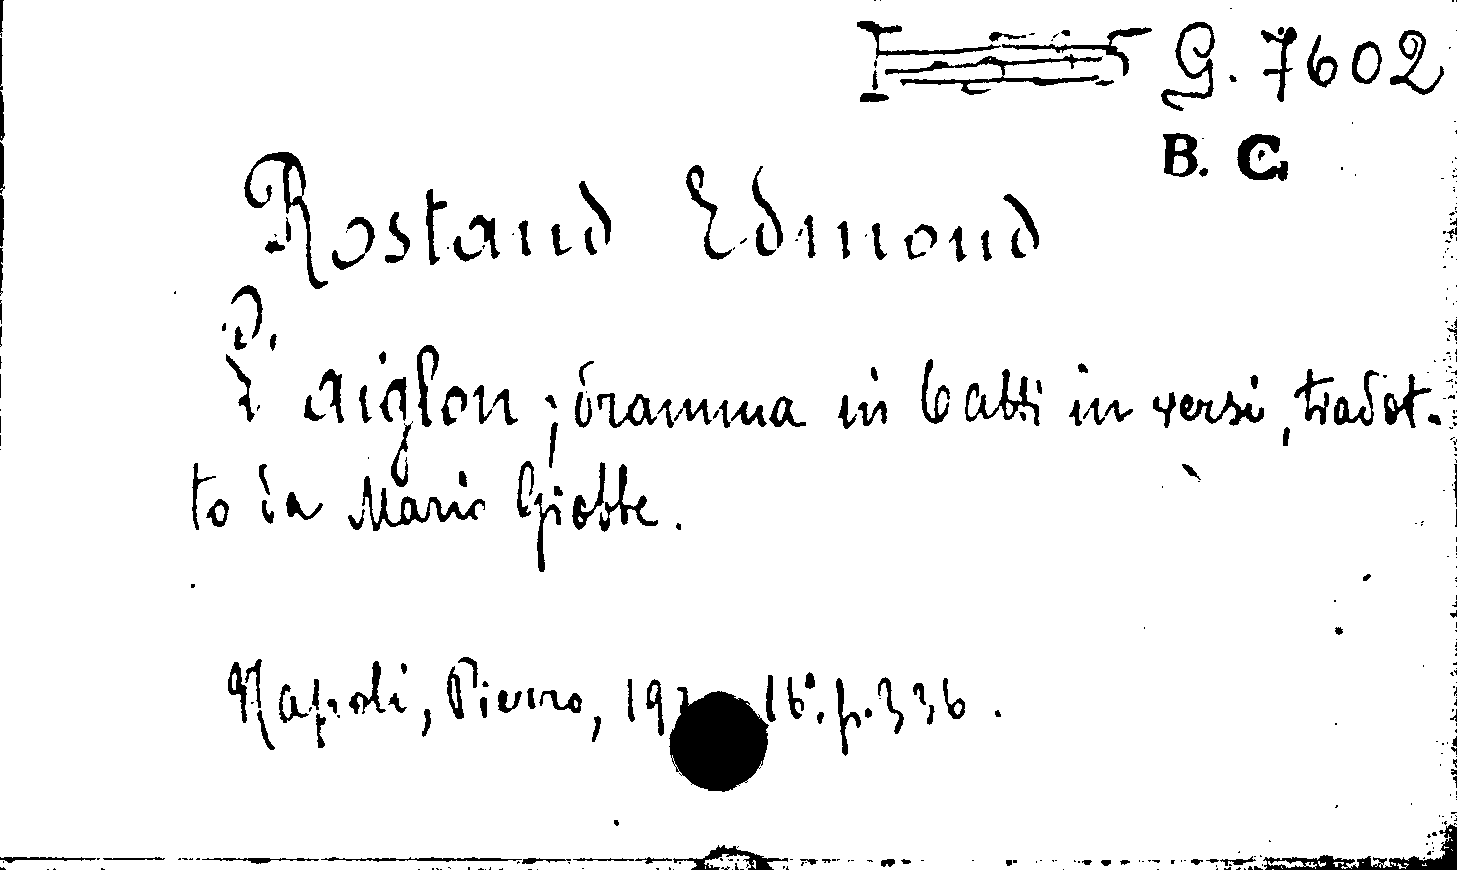 G. 7602
B. C.
Rostand Edmond
L'aiglon; dramma in 6 atti in versi, tradot-
to da Mario Giobbe.
Napoli, Pierro, 16°. p. 336.